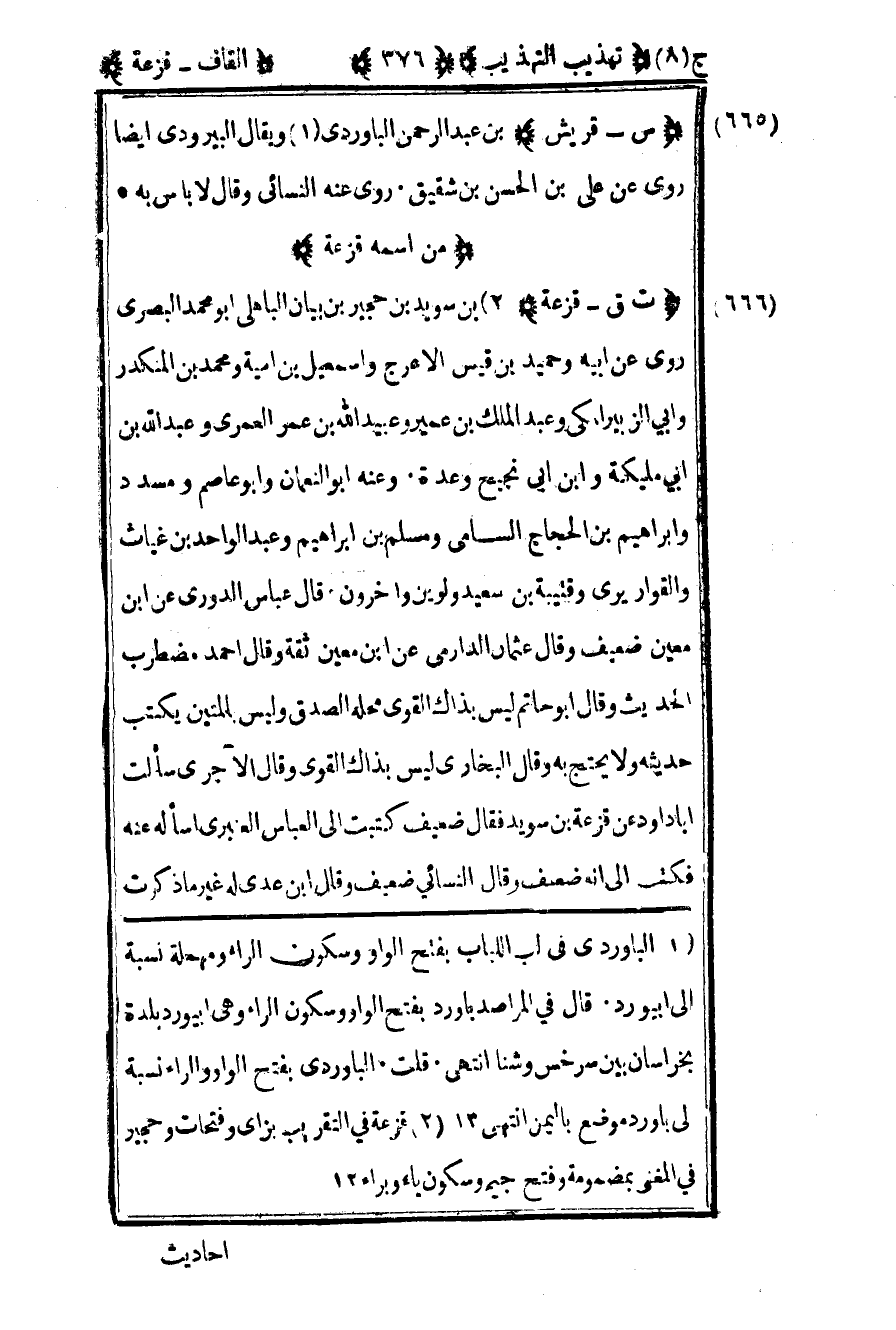 ج (٨) ﴿ تهذيب التهذيب ﴾ ﴿ ٣٧٦ ﴾ ﴿ القاف - قزعة ﴾
(٦٦٥) ﴿ س - قريش ﴾ بن عبد الرحمن الباوردى (١) ويقال البيرودى ايضا
روى عن على بن الحسن بن شقيق . روى عنه النسائى وقال لا باس به *
﴿ من اسمه قزعة ﴾
(٦٦٦) ﴿ ت ق - قزعة ﴾ ٢) بن سويد بن حجير بن بيان الباهلى ابو محمد البصرى
روى عن ابيه وحميد بن قيس الاعرج واسمعيل بن امية ومحمد بن المنكدر
وابي الزبير المكى وعبد الملك بن عمير وعبيد الله بن عمر العمرى و عبد الله بن
ابي مليكة و ابن ابي نجيح وعدة . وعنه ابو النعمان وابو عاصم و مسدد
وابراهيم بن الحجاج السامى ومسلم بن ابراهيم وعبد الواحد بن غياث
والقواريرى وقتيبة بن سعيد ولوين واخرون . قال عباس الدورى عن ابن
معين ضعيف وقال عثمان الدارمى عن ابن معين ثقة وقال احمد مضطرب
الحديث وقال ابو حاتم ليس بذاك القوى محله الصدق وليس بالمتين يكتب
حديثه ولا يحتج به وقال البخارى ليس بذاك القوى وقال الآجرى سألت
ابا داود عن قزعة بن سويد فقال ضعيف كتبت الى العباس العنبرى اسأله عنه
فكتب الى انه ضعيف وقال النسائي ضعيف وقال ابن عدى له غير ما ذكرت
(١ الباوردى فى لب اللباب بفتح الواو وسكون الراء ومهملة نسبة
الى ابيورد . قال في المراصد باورد بفتح الواو وسكون الراء وهى ابيورد بلدة
بخراسان بين سرخس وشنا انتهى . قلت . الباوردى بفتح الواو والراء نسبة
لى باورد موضع باليمن انتهى ١٣ (٢) قزعة في التقريب بزاى وفتحات وحجير
في المغنى بمضمومة وفتح جيم وسكون ياء وبراء ١٢
احاديث